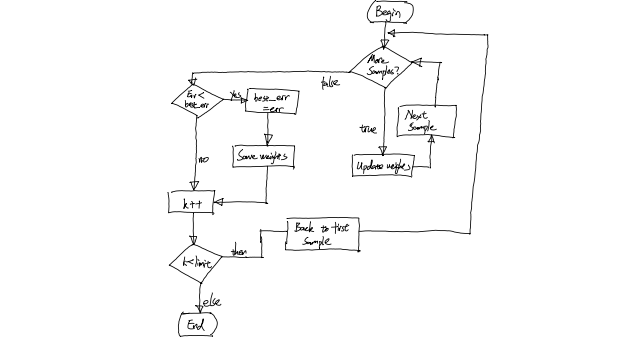 Begin
More
Samples?
false
true
Next
Sample
Update weights
Err <
best_err
yes
best_err
=err
Save weights
no
k++
k<limit
then
Back to first
Sample
else
End